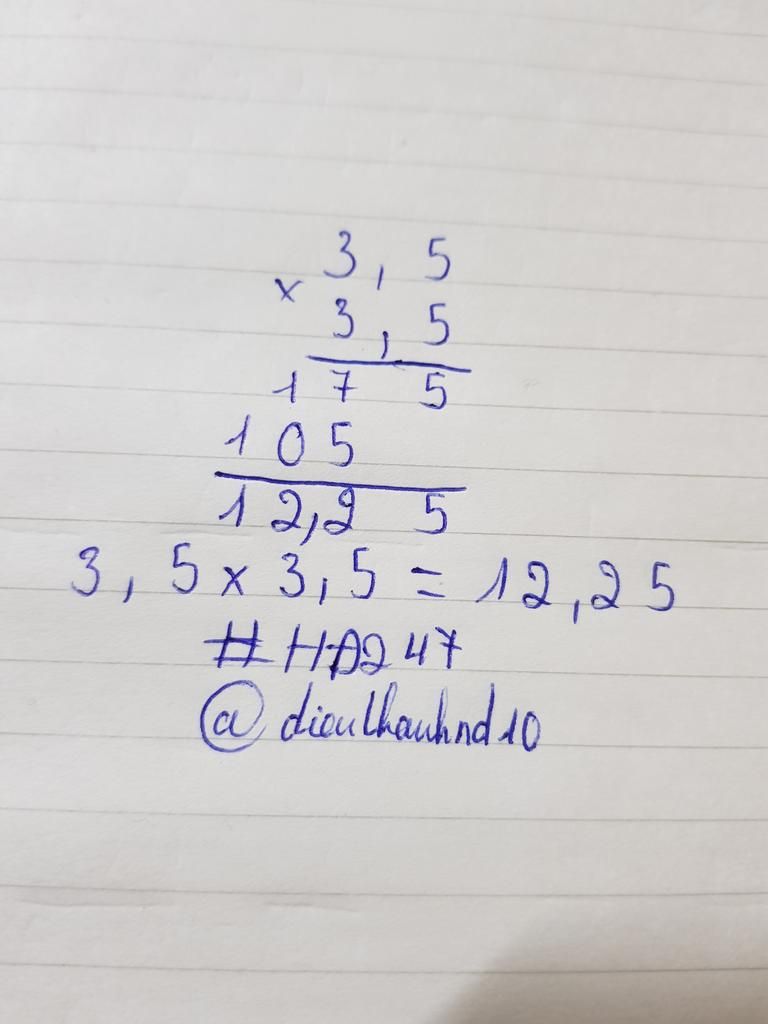 3,5
×
3,5
175
105
12,25
3,5 × 3,5 = 12,25
#HD247
@dieuthanhnd10